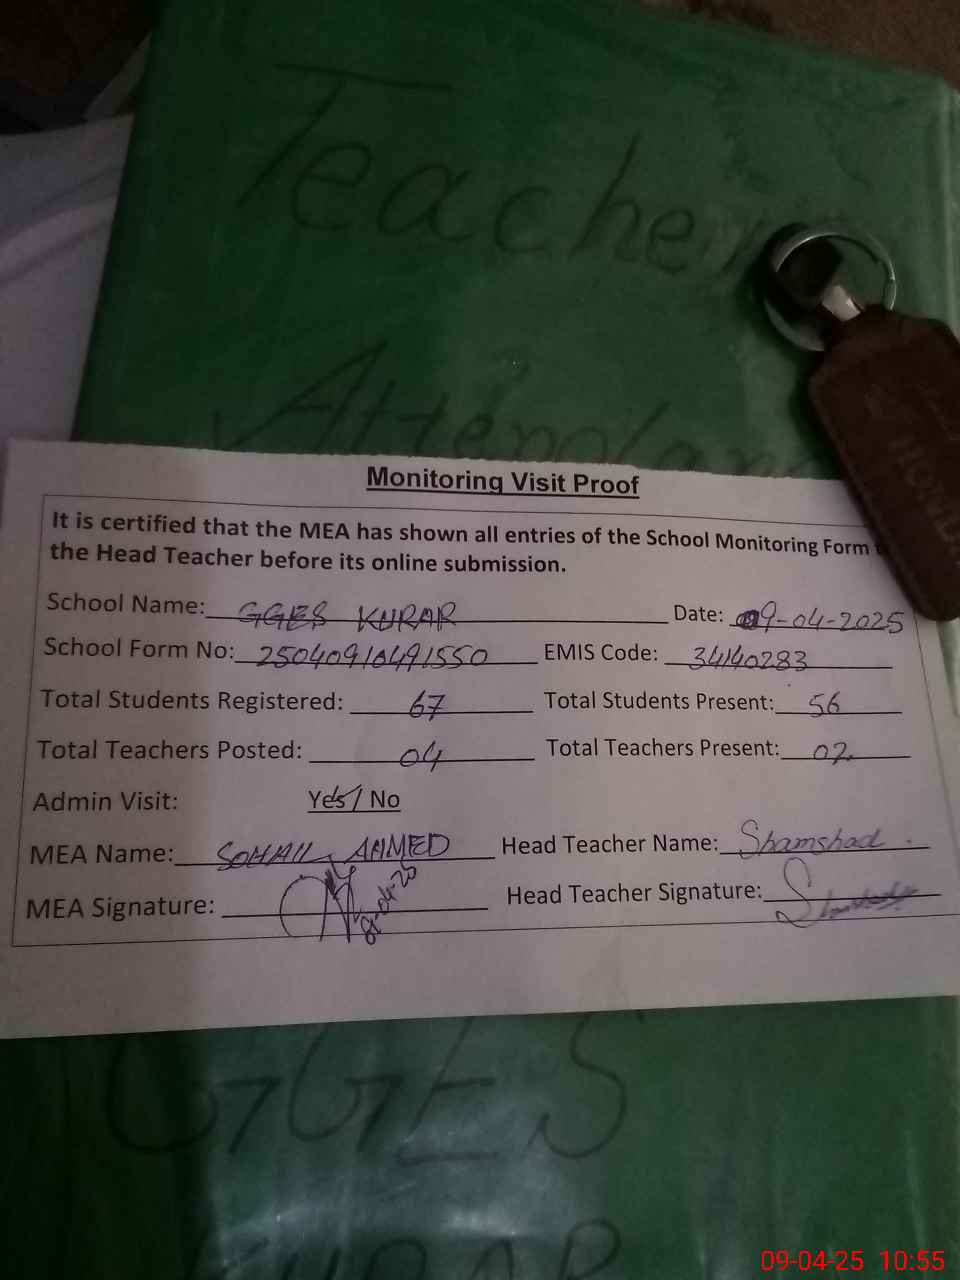 Teacher
Attendan
Monitoring Visit Proof
It is certified that the MEA has shown all entries of the School Monitoring Form
the Head Teacher before its online submission.
School Name: GGES KURAR Date: 09-04-2025
School Form No: 25040910491550 EMIS Code: 34140283
Total Students Registered: 67 Total Students Present: 56
Total Teachers Posted: 04 Total Teachers Present: 02
Admin Visit: Yes / No
MEA Name: SOHAIL AHMED Head Teacher Name: Shamshad.
MEA Signature: Head Teacher Signature:
GGES
KURAR
09-04-25 10:55